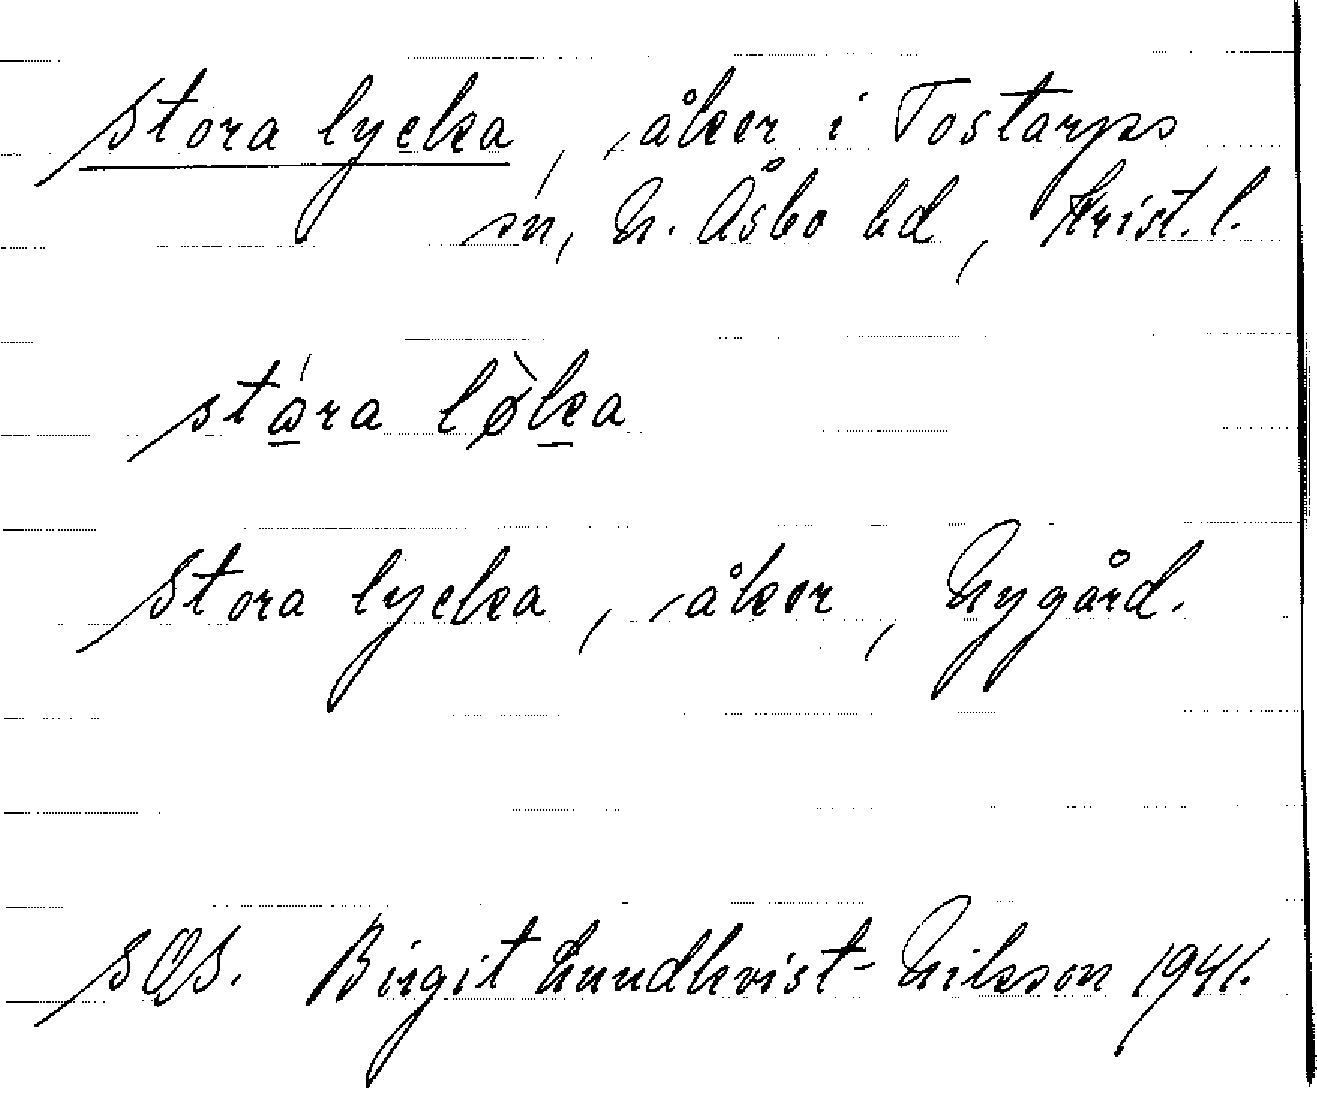 Stora lycka, åker i Tostarps
sn, N. Åsbo hd, Krist. l.
stǻra lø̀ka
Stora lycka, åker, Nygård.
SOS. Birgit Lundkvist-Nilsson 1941.